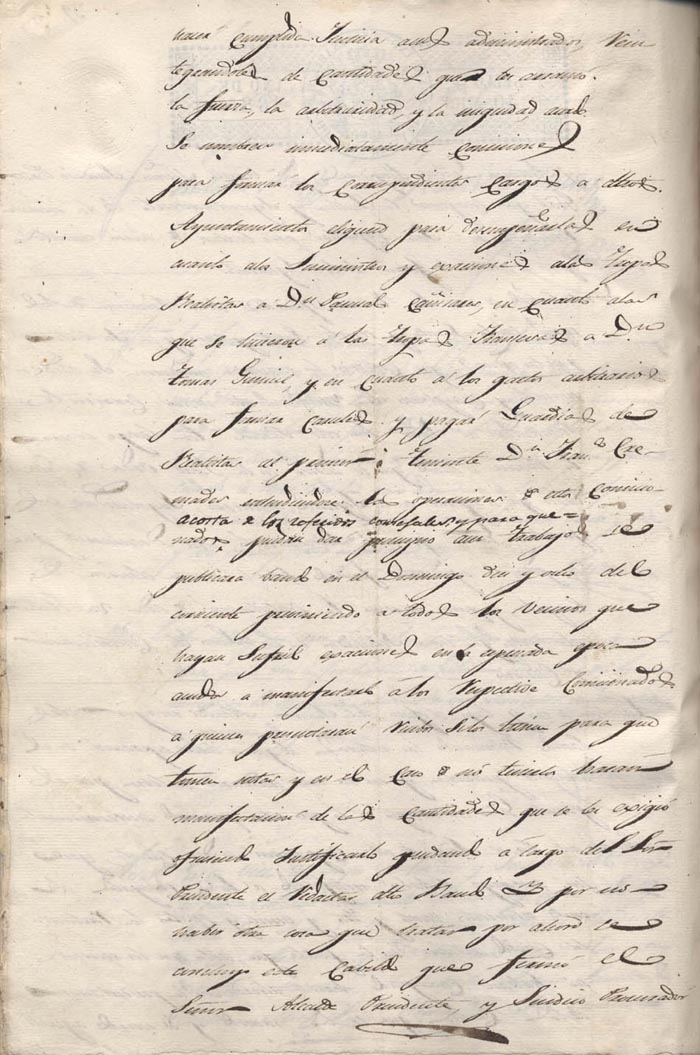 hacer Cumplida Justicia a sus administrados, Rein-
tegrandoles de Cantidades que les arrancó
la fuerza, la arbitrariedad, y la iniquidad acordó
Se nombren inmediatamente Comisiones
para formar los Correspondientes Cargos a dhos.
Ayuntamientos eligiendo para desempeñarlas en
cuanto a los Suministros y exacciones a las tropas
Realistas a Dn. Pascual en cuanto a las
que se hicieron á las tropas Francesas a Dn
Tomas y en cuanto á los gastos arbitrarios
para formar Causas y pagar Guardias de
Realistas al primer Teniente Dn. Franco. Cre-
mades entendiendose las operaciones de esta Comicio
acosta de los referidos concejales, y para que =
nados puedan dar principio a sus trabajos se
publicará bando en el Domingo diez y ocho del
corriente previniendo a todos los vecinos que
hayan Sufrido exacciones en la expresada epoca
acudan a manifestarlo á los Respectivos Comicionados
á quienes presentarán recibos Si los tienen para que
tomen notas y en el Caso de no tenerlos haran
manifestacion de las Cantidades que se les exigió
ofreciendo Justificarlo quedando á cargo del Sor.
Presidente el Redactar dho Bando. Y por no
haber otra cosa que tratar por ahora se
concluyó este Cabildo que firmó el
Señor Alcalde Presidente, y Sindico Procurador